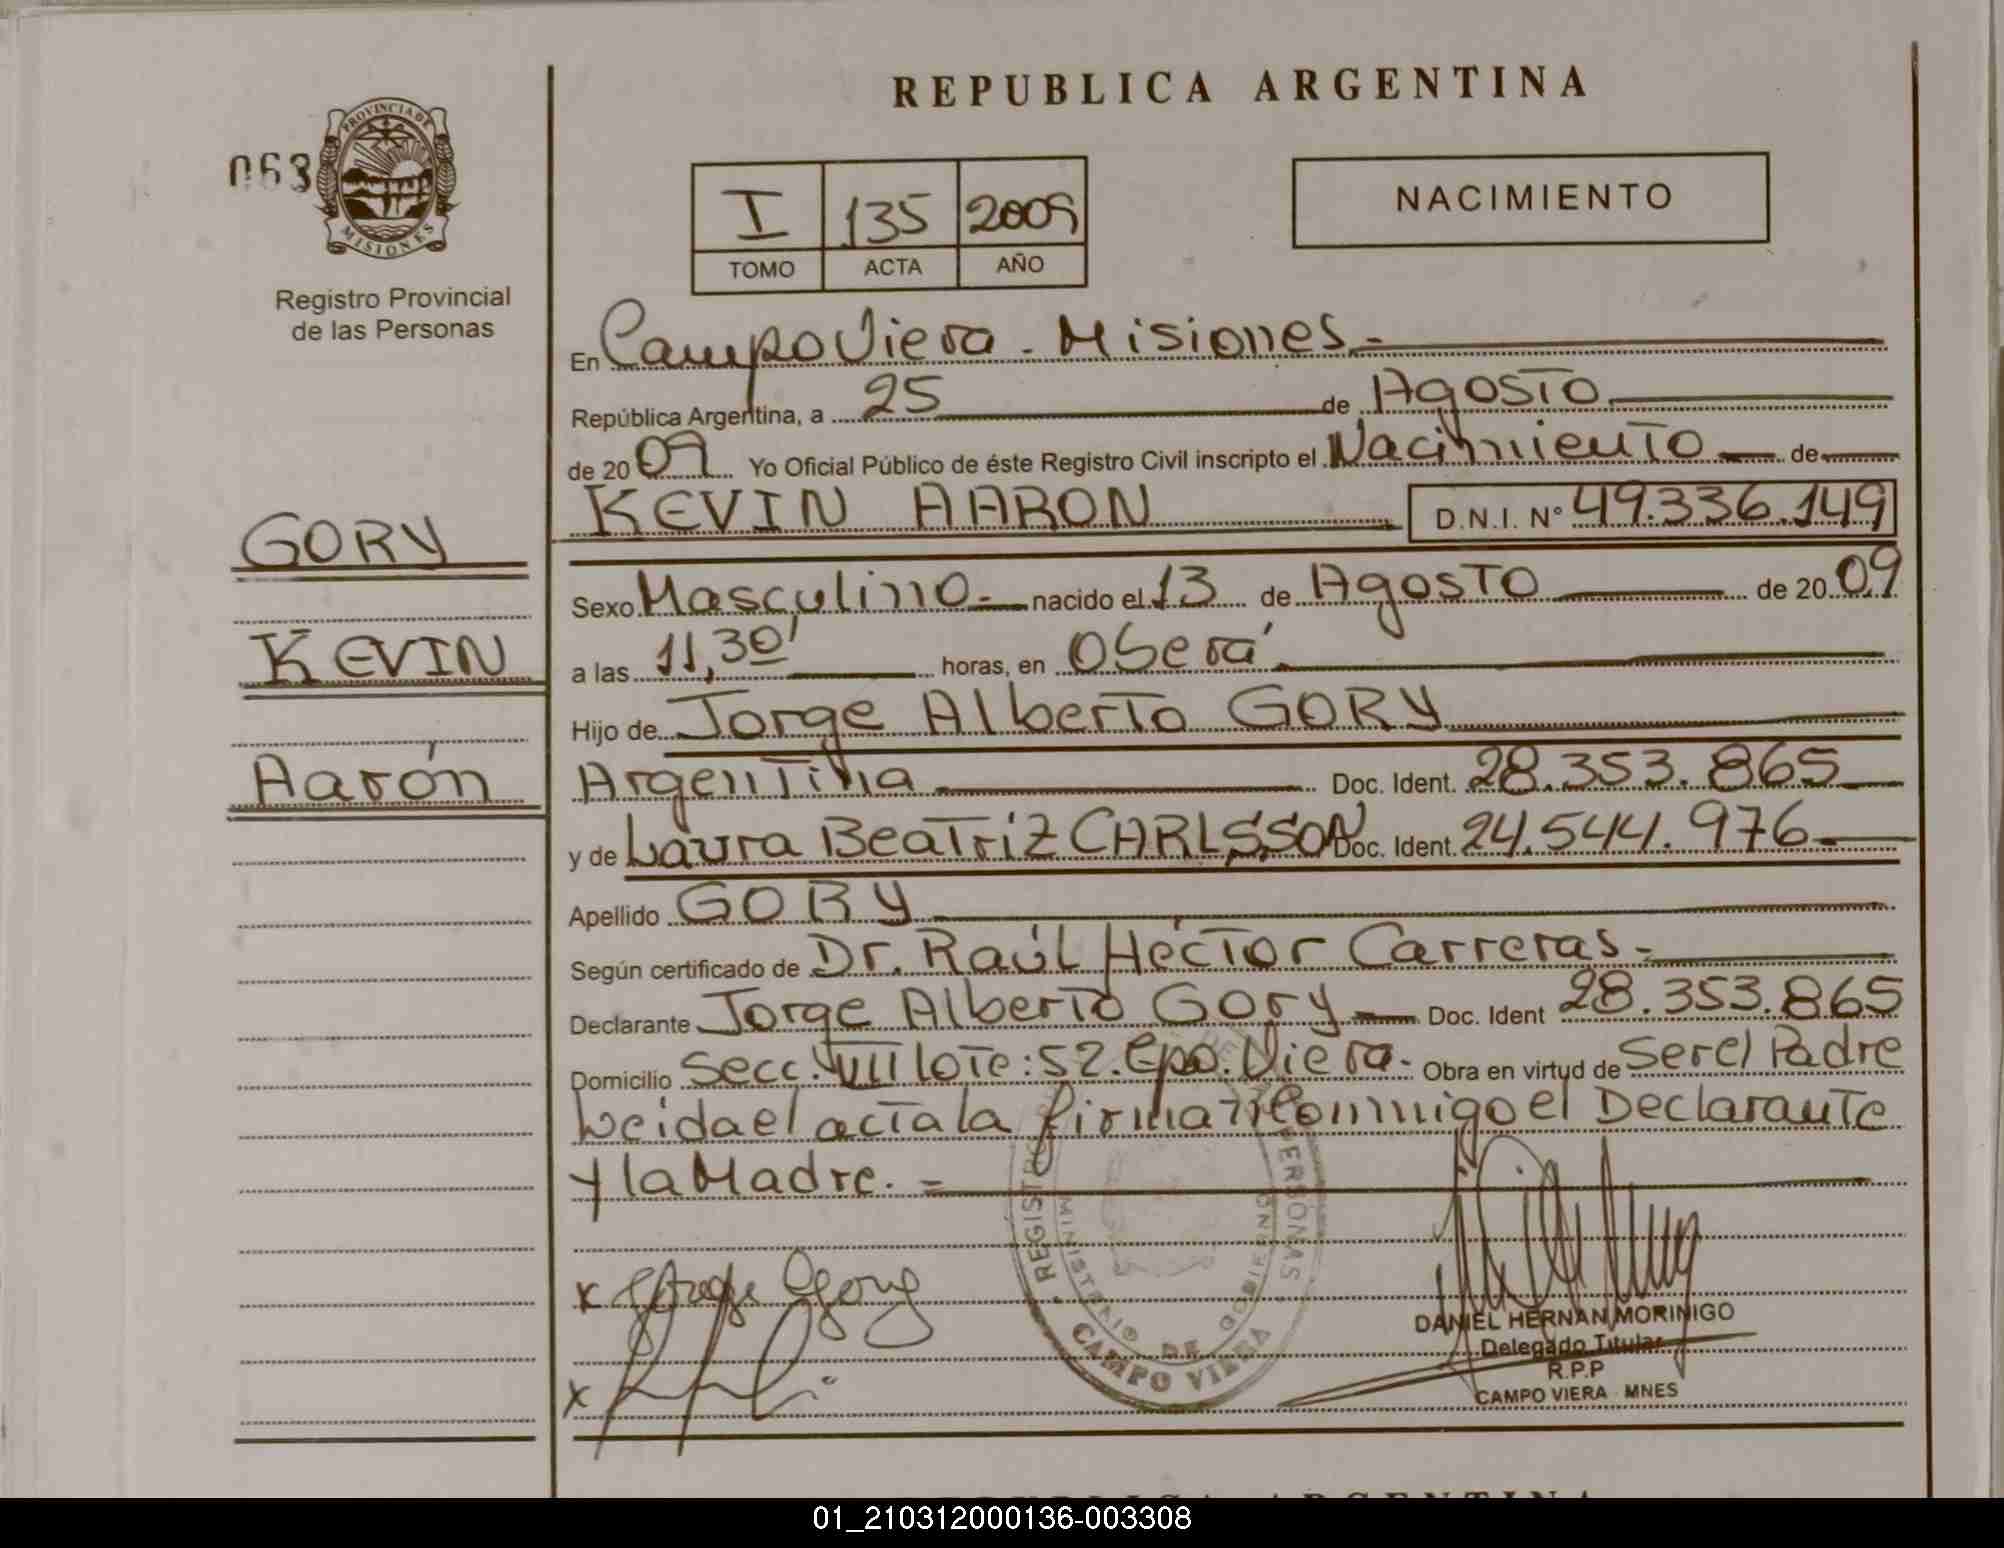 REPUBLICA ARGENTINA
PROVINCIA DE
MISIONES
063
Registro Provincial
de las Personas
I 135 2009
TOMO ACTA AÑO
NACIMIENTO
En Campo Viera - Misiones.-
República Argentina, a 25 de Agosto
de 2009 Yo Oficial Público de éste Registro Civil inscripto el Nacimiento de
KEVIN AARON D.N.I. Nº 49.336.149
GORY
KEVIN
Aarón
Sexo Masculino.- nacido el 13 de Agosto de 2009
a las 11,30' horas, en Oberá
Hijo de Jorge Alberto GORY
Argentina Doc. Ident. 28.353.865
y de Laura Beatriz CARLSSON Doc. Ident. 24.544.976
Apellido GORY
Según certificado de Dr. Raúl Héctor Carreras.-
Declarante Jorge Alberto Gory Doc. Ident 28.353.865
Domicilio Secc. VIII Lote: 52. Cpo. Viera. Obra en virtud de Ser el Padre
Leida el acta la firman Conmigo el Declarante
y la Madre. -
x Jorge Gory
x
REGISTRO PERSONAS
MINISTERIO DE GOBIERNO
CAMPO VIERA
DANIEL HERNAN MORINIGO
Delegado Titular
R.P.P
CAMPO VIERA - MNES
REPUBLICA ARGENTINA
01_210312000136-003308